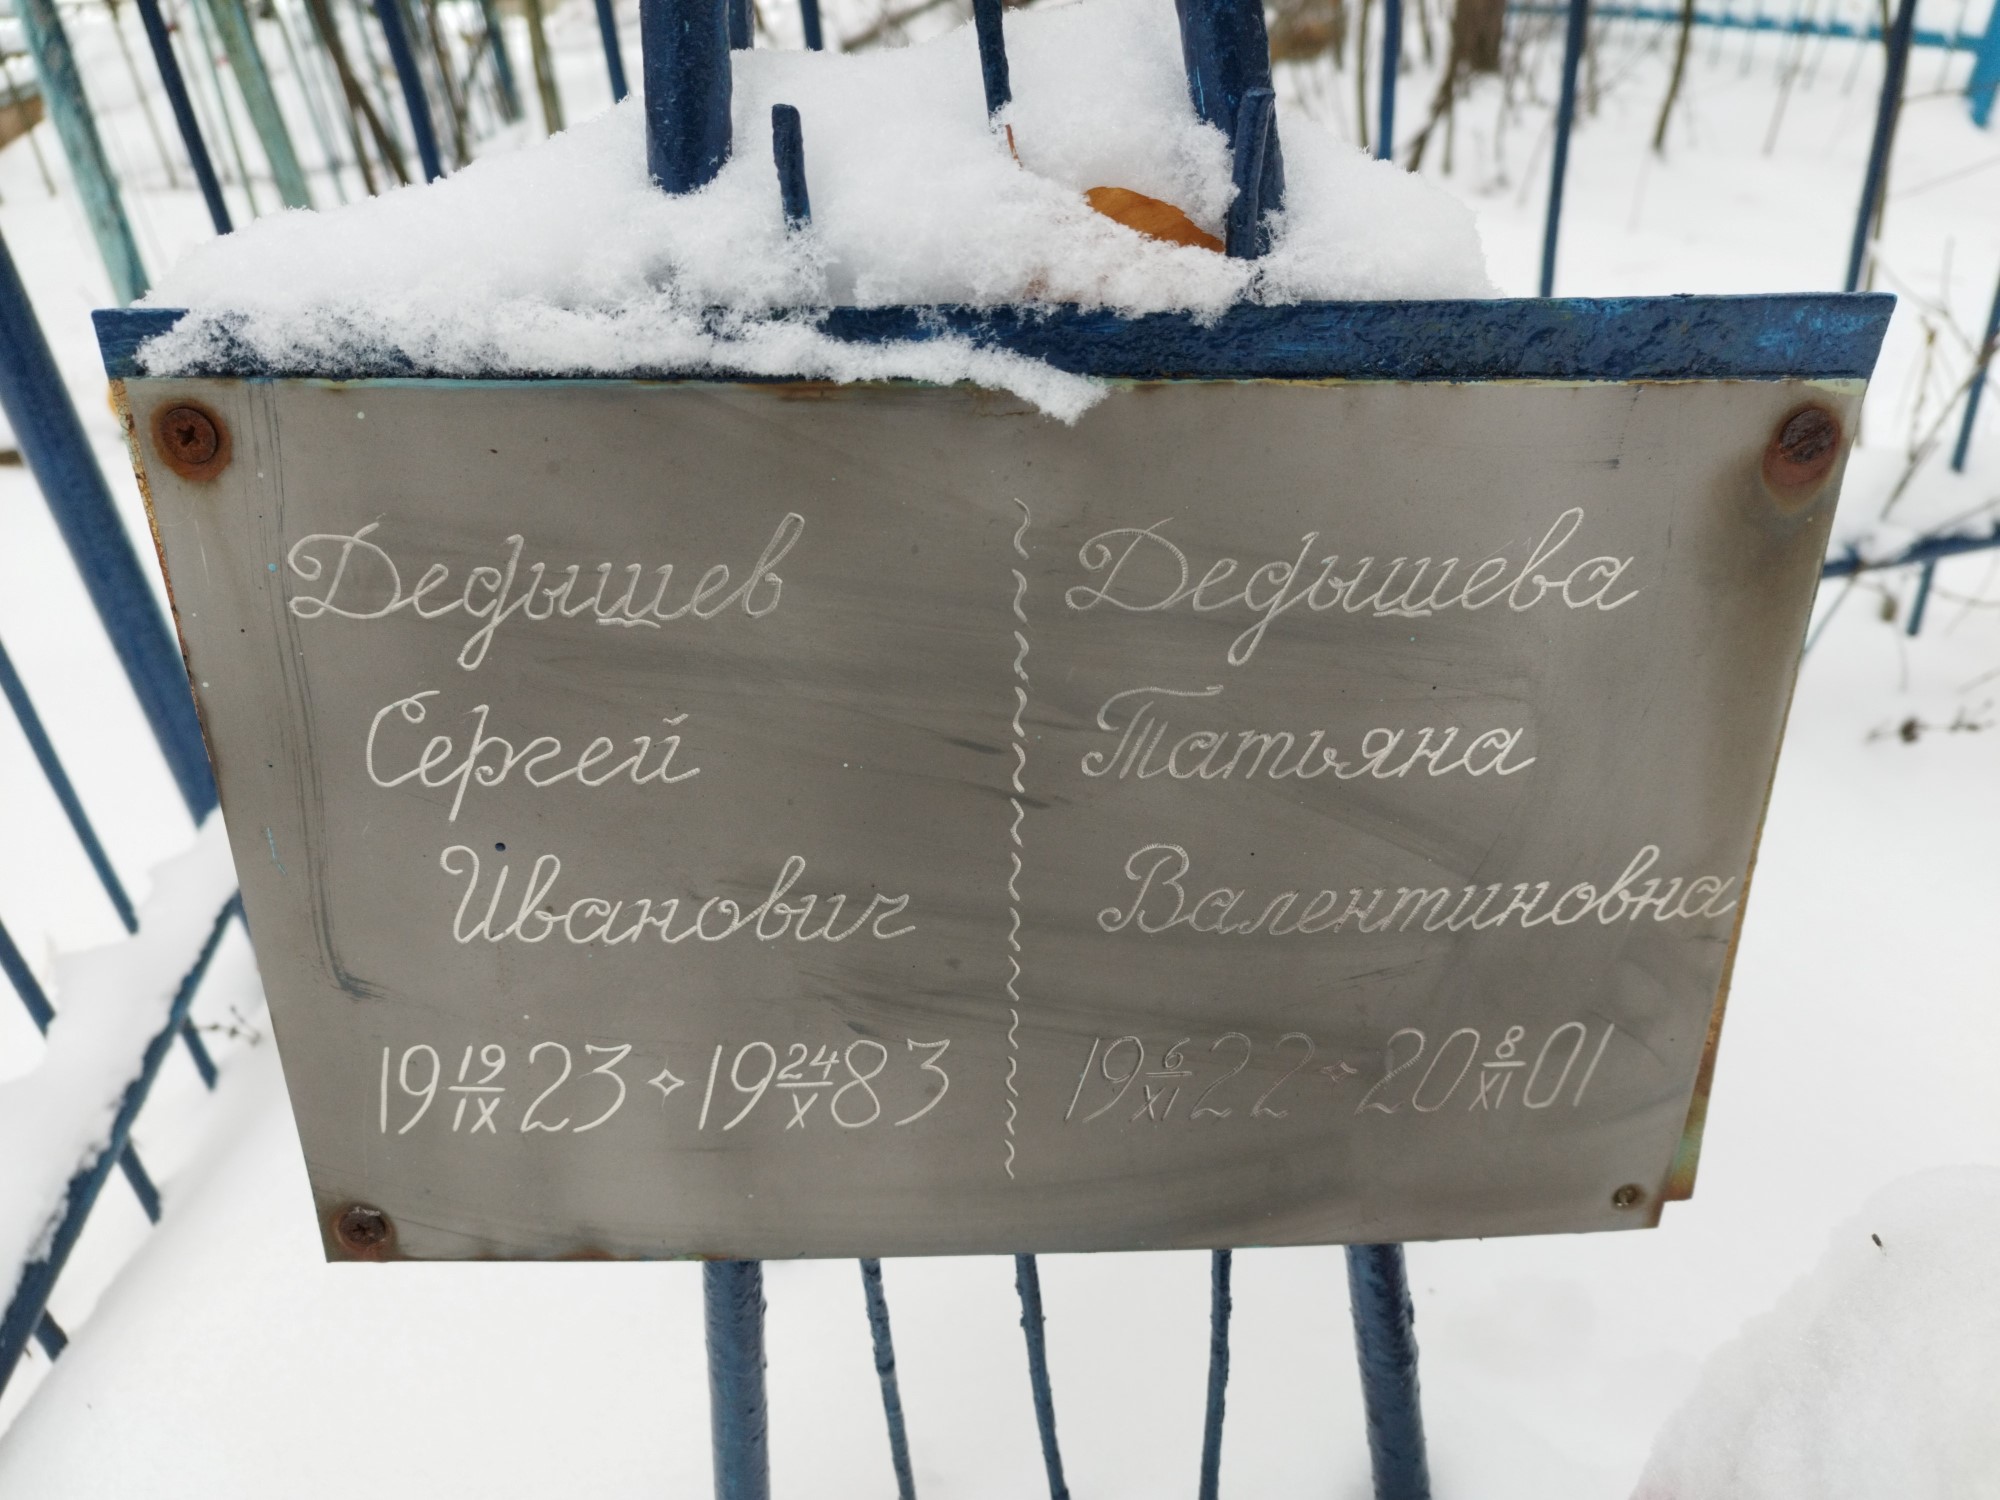 Дедышев
Сергей
Иванович
19 19/IX 23 ✧ 19 24/X 83
Дедышева
Татьяна
Валентиновна
19 6/XI 22 ✧ 20 8/XI 01